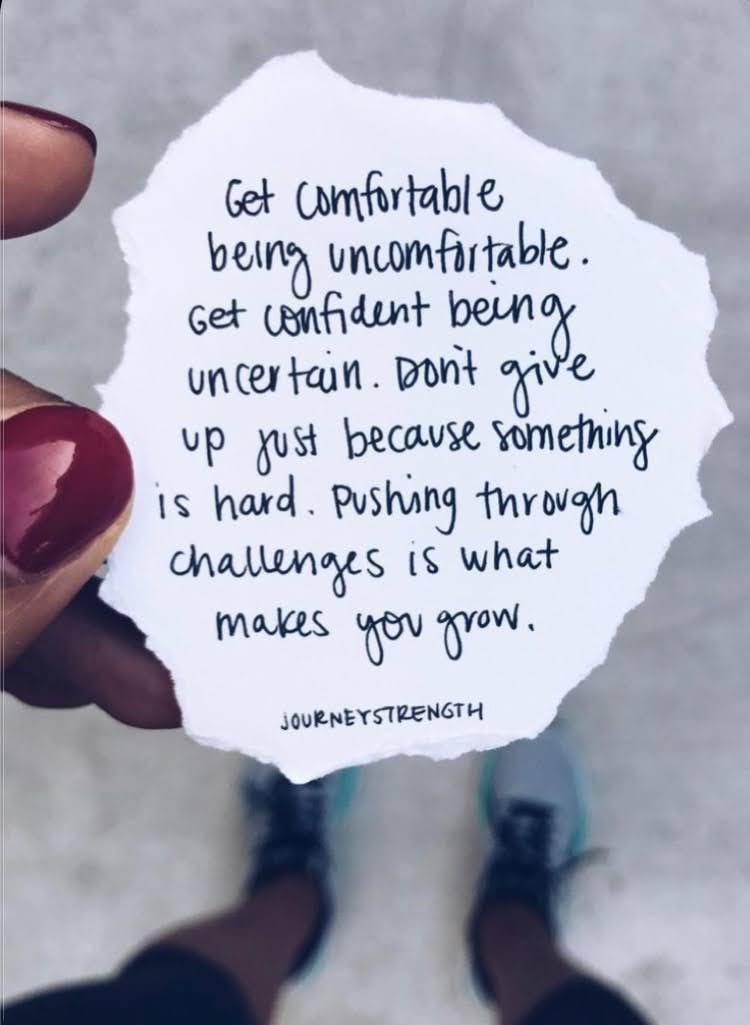 Get comfortable
being uncomfortable.
Get confident being
uncertain. Don't give
up just because something
is hard. Pushing through
challenges is what
makes you grow.
JOURNEYSTRENGTH